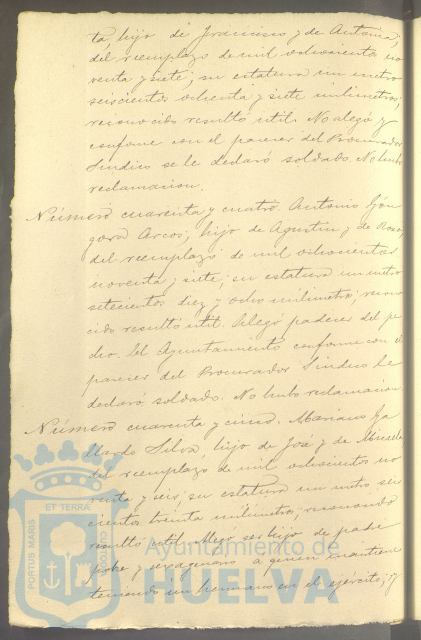 ta, hijo de Francisco y de Antonia,
del reemplazo de mil ochocientos no
venta y siete; su estatura un metro
seiscientos ochenta y siete milimetros;
reconocido resultó util. No alegó y
conforme con el parecer del Procurador
Sindico se le declaró soldado. No hubo
reclamacion.
Número cuarenta y cuatro. Antonio Gón
gora Arcos, hijo de Agustin y de Rosa,
del reemplazo de mil ochocientos
noventa y siete; su estatura un metro
setecientos diez y ocho milimetros; recono
cido resultó util. Alegó padecer del pe
cho. El Ayuntamiento conforme con el
parecer del Procurador Sindico le
declaró soldado. No hubo reclamacion.
Número cuarenta y cinco. Mariano Ga
llardo Silva, hijo de José y de
del reemplazo de mil ochocientos no
venta y seis, su estatura un metro seis
cientos treinta milimetros; reconocido
resultó util. Alegó ser hijo de padre
pobre y sexagenario a quien mantiene
teniendo un hermano en el ejército; y
PORTUS MARIS
ET TERRÆ
CUSTODIA
Ayuntamiento de
HUELVA